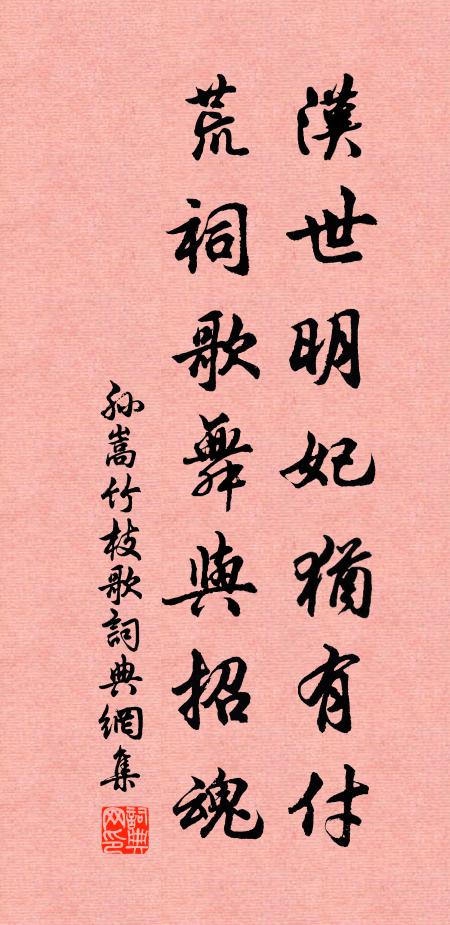 漢世明妃猶有村
荒祠歌舞與招魂
孙嵩竹枝歌詞典網集
詞典网印